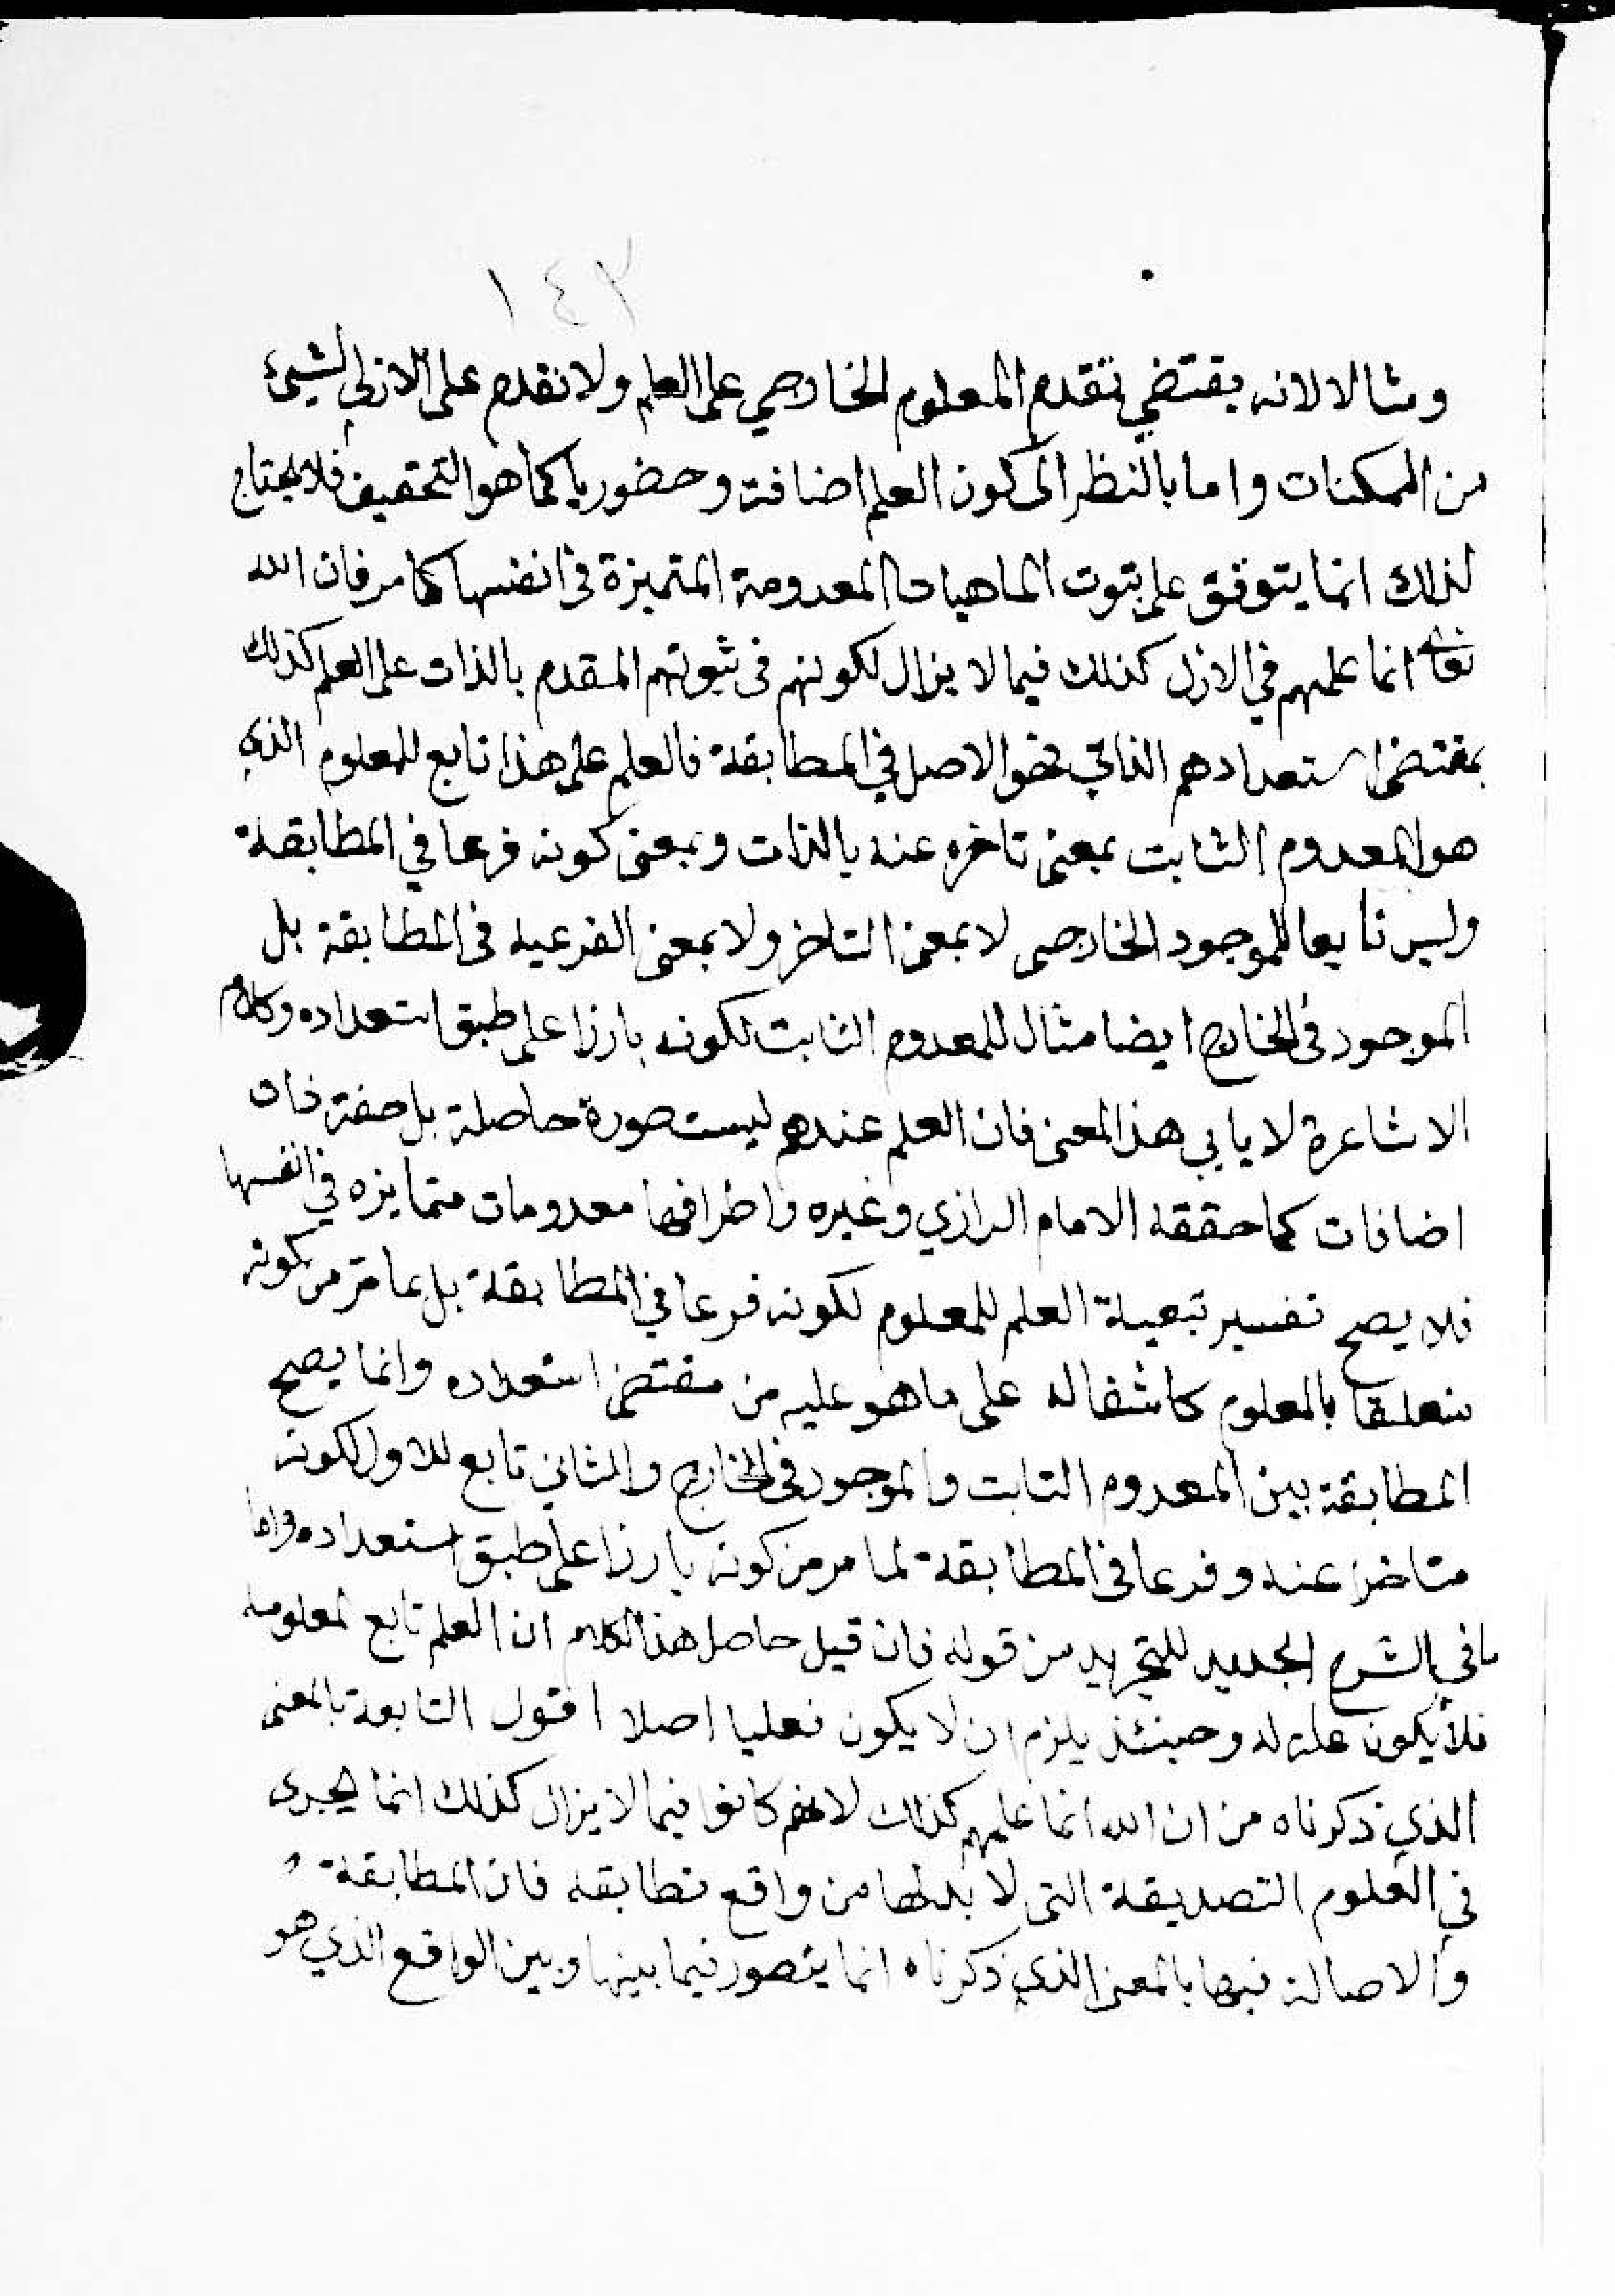 ١٤٢
ومثالا لانه يقتضي تقدم المعلوم الخارجي على العلم ولا تقدم على الازلي لشيئ
من الممكنات واما بالنظر الى كون العلم اضافة وحضوريا كما هو التحقيق فلا يحتاج
لذلك انما يتوقف على ثبوت الماهيات المعدومة المتميزة فى انفسها كما مر فان الله
تعالى انما علمهم في الازل كذلك فيما لا يزال لكونهم فى ثبوتهم المقدم بالذات على العلم كذلك
بمقتضى استعدادهم الذاتي فهو الاصل في المطابقة فالعلم على هذا تابع للمعلوم الذي
هو المعدوم الثابت بمعنى تاخره عنه بالذات وبمعنى كونه فرعا في المطابقة
وليس تابعا للموجود الخارجى لا بمعنى التاخر ولا بمعنى الفرعيه فى المطابقة بل
الموجود فى الخارج ايضا مثال للمعدوم الثابت لكونه بارزا على طبق استعداده وكلام
الاشاعرة لا يابي هذا المعنى فان العلم عندهم ليست صورة حاصلة بل صفة ذات
اضافات كما حققه الامام الرازي وغيره واطرافها معدومات متمايزه في انفسها
فلا يصح تفسير تبعية العلم للمعلوم لكونه فرعا في المطابقة بل بما مر من كونه
متعلقا بالمعلوم كاشفا له على ما هو عليه من مقتضى استعداده وانما يصح
المطابقة بين المعدوم الثابت والموجود فى الخارج والثاني تابع للاول لكونه
متاخرا عنه وفرعا فى المطابقة لما مر من كونه بارزا على طبق استعداده واما
ما في الشرح الجديد للتجريد من قوله فان قيل حاصل هذا الكلام ان العلم تابع لمعلومه
فلا يكون علة له وحينئذ يلزم ان لا يكون فعليا اصلا اقول التابعة بالمعنى
الذي ذكرناه من ان الله انما علمهم كذلك لانهم كانوا فيما لا يزال كذلك انما يجرى
في العلوم التصديقة التى لا بد لها من واقع تطابقه فان المطابقة
والاصالة فيها بالمعنى الذي ذكرناه انما يتصور فيما بينها وبين الواقع الذي هو